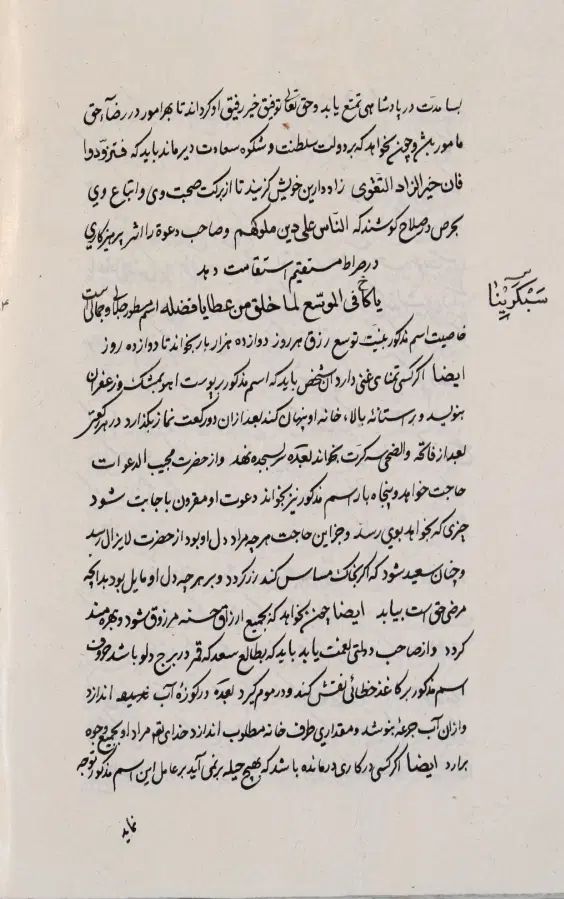 بسا مدت در پادشاهی تمتع یابد و حق تعالی توفیق خیر رفیق او کرداند تا بهر امور در رضاء حق
مامور باشد و چون بخواهد که بر دولت سلطنت و شکوه سعادت دیر ماند باید که فتزودوا
فان خیر الزاد التقوی زاد دارین خویش کزیند تا از برکت صحبت وی و اتباع وی
بحرص و صلاح کوشند که الناس علی دین ملوکهم و صاحب دعوة را اثر پرهیزکاری
در صراط مستقیم استقامت دهد
یا کافی الموسع لما خلق من عطایا فضله اسم سطور جلالی و جمالی است
سبکرینا
خاصیت اسم مذکور بنیت توسع رزق هر روز دوازده هزار بار بخواند تا دوازده روز
ایضا اکر کسی تمنای غنی دارد آن شخص باید که اسم مذکور بر پوست اهو بمشک و زعفران
بنویسد و بر استانه بالاء خانه او پنهان کند بعد ازان دو رکعت نماز بکذارد در هر رکعتی
بعد از فاتحه والضحی سه کرت بخواند بعده سر بسجده نهد و از حضرت مجیب الدعوات
حاجت خواهد و پنجاه بار اسم مذکور نیز بخواند دعوت او مقرون باجابت شود
چیزی که بخواهد بوی رسد و جز این حاجت هرچه مراد دل او بود از حضرت لایزال رسد
و چنان سعید شود که اکر بخاک مساس کند زر کردد و بر هرچه دل او مایل بود بدانچه
مرضی حق است بیابد ایضا چون بخواهد که بجمیع ارزاق حسنه مرزوق شود و بهره مند
کردد و از صاحب دولتی نعمت یابد باید که بطالع سعد که قمر در برج دلو باشد حروف
اسم مذکور بر کاغذ خطائی نقش کند و در موم کیرد بعده در کوزه آب اندازد
و ازان آب جرعه بنوشد و مقداری طرف خانه مطلوب اندازد خدای تعه مراد او بجمیع وجوه
برارد ایضا اکر کسی در کاری درمانده باشد که بهیچ حیله بر نمی آید بر عامل این اسم مذکور توجه
نماید